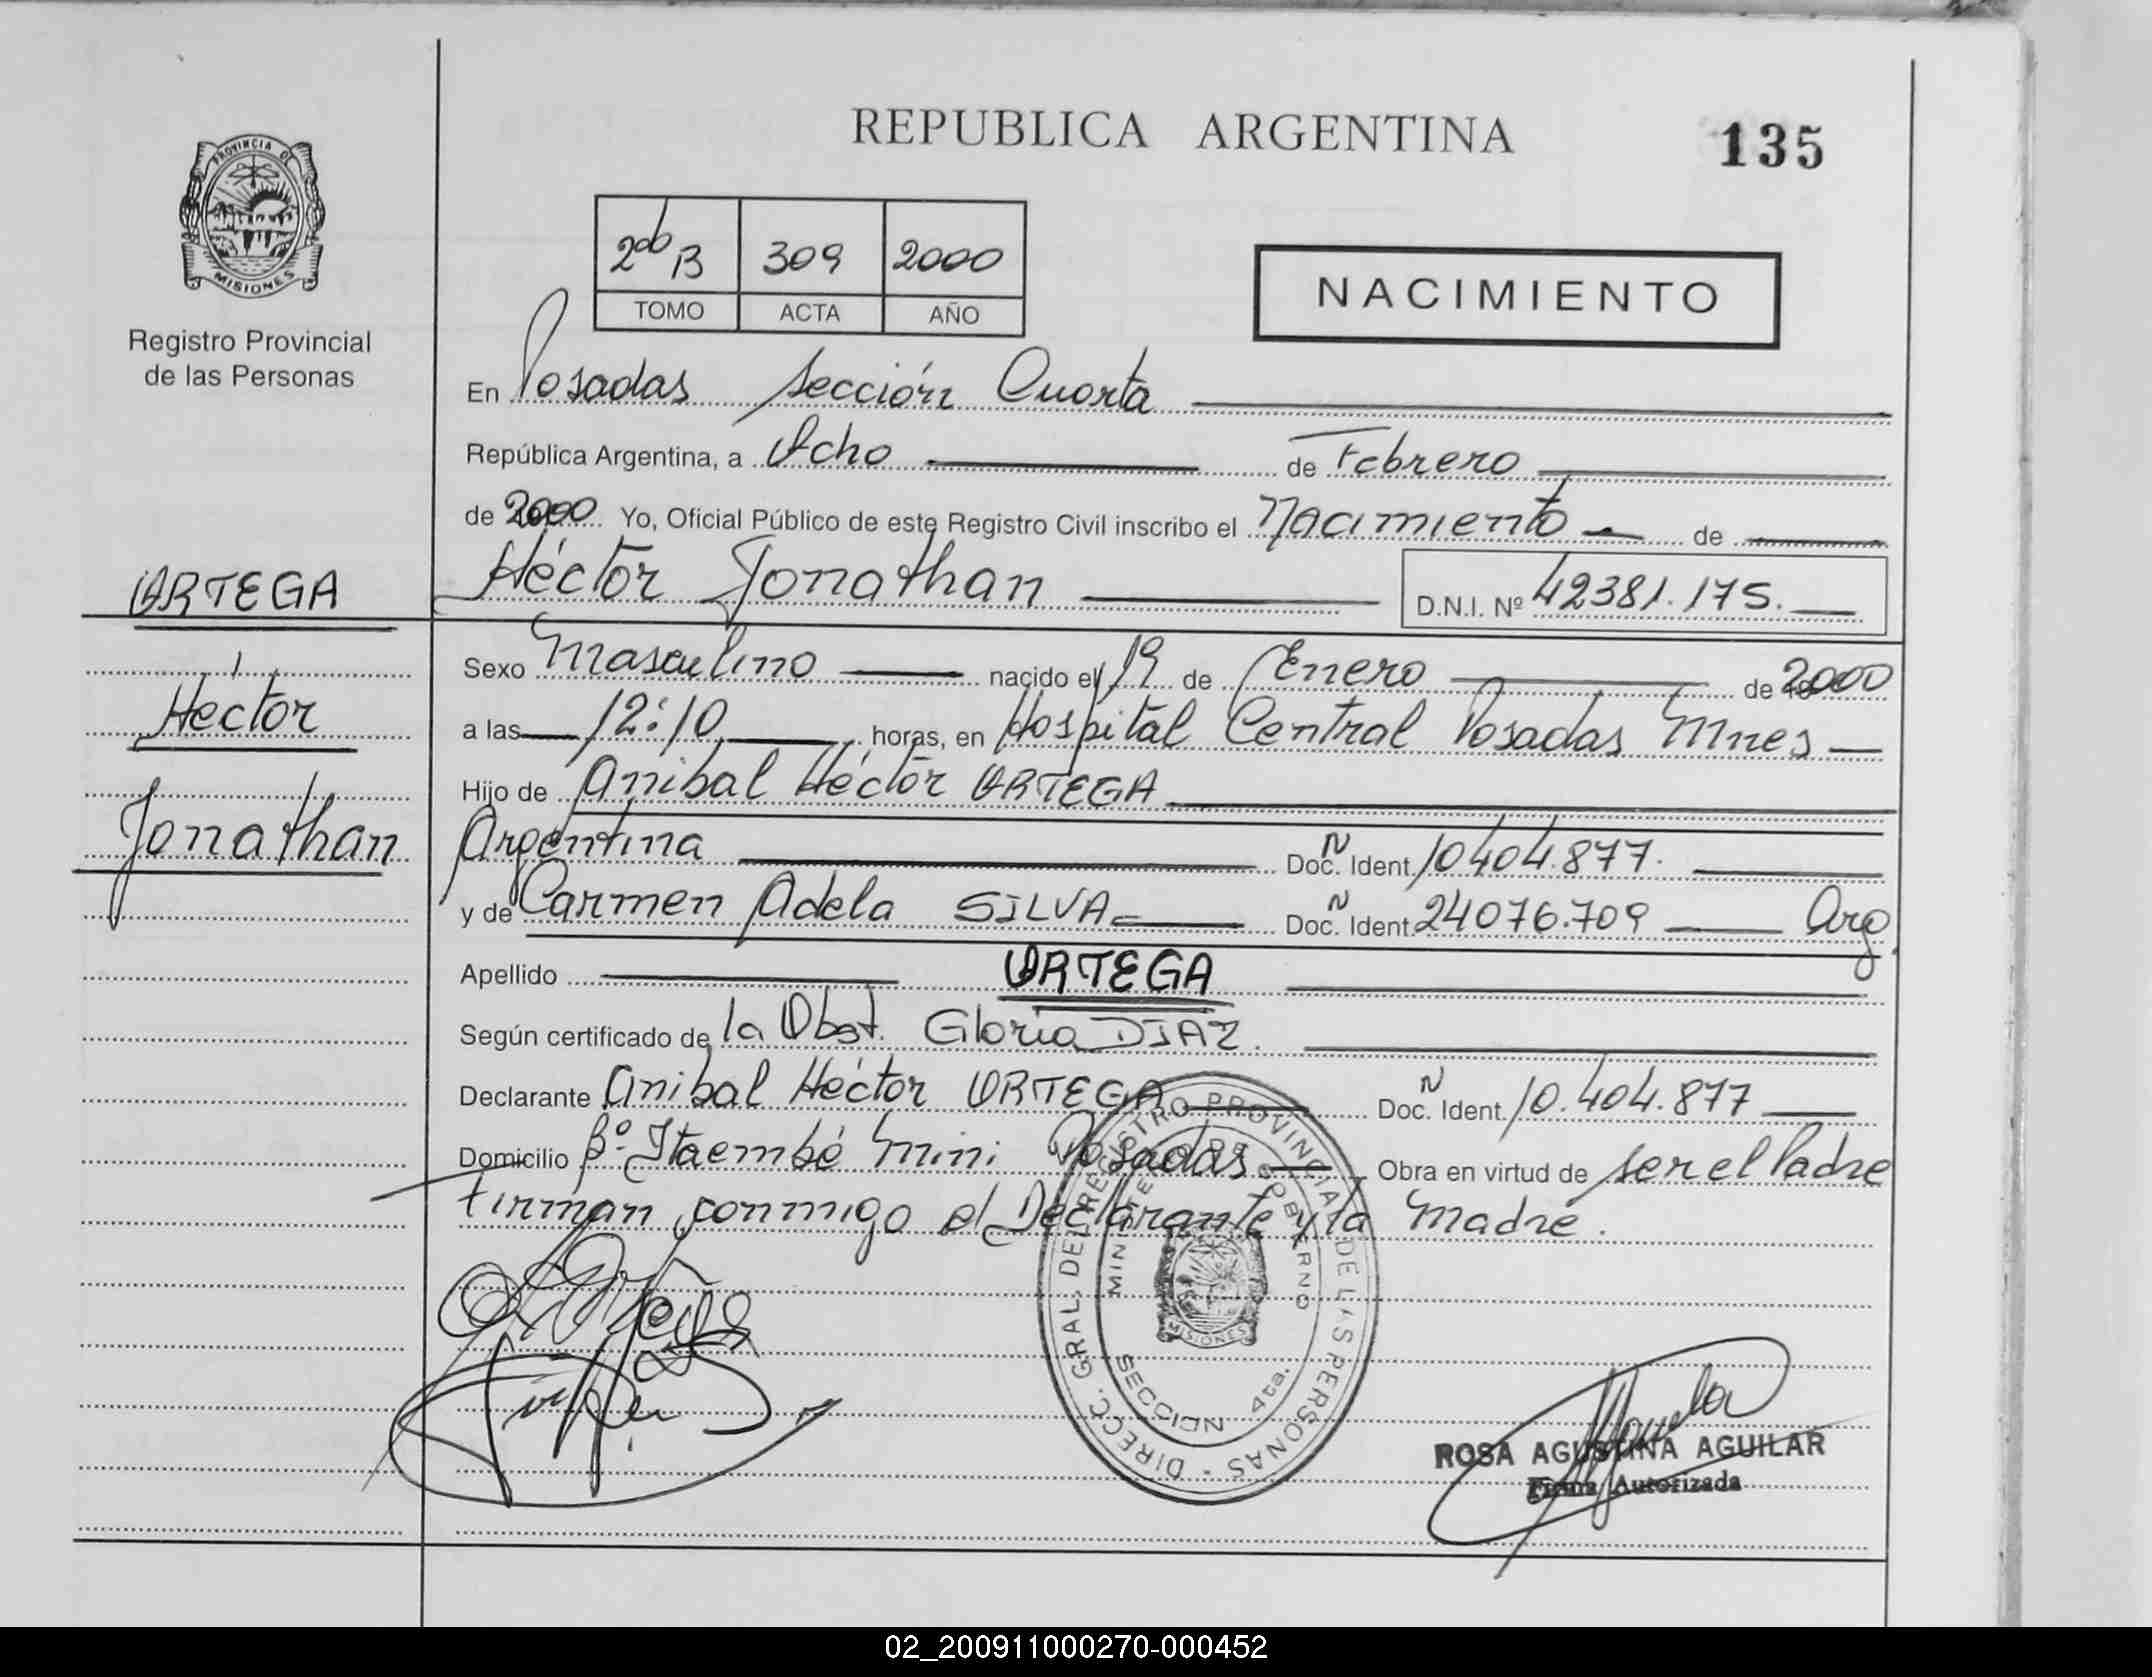 REPUBLICA ARGENTINA
135
PROVINCIA DE
MISIONES
Registro Provincial
de las Personas
2do B 309 2000
TOMO ACTA AÑO
NACIMIENTO
En Posadas sección Cuarta
República Argentina, a Ocho de Febrero
de 2000 Yo, Oficial Público de este Registro Civil inscribo el Nacimiento de
Héctor Jonathan D.N.I. Nº 42381.175.
ORTEGA
Héctor
Jonathan
Sexo Masculino nacido el 19 de Enero de 2000
a las 12:10 horas, en Hospital Central Posadas Mnes
Hijo de Anibal Héctor ORTEGA
Argentina Doc. Ident. N 10404.877.
y de Carmen Adela SILVA Doc. Ident. N 24076.709 Arg.
Apellido ORTEGA
Según certificado de la Obst. Gloria DIAZ.
Declarante Anibal Héctor ORTEGA Doc. Ident. N 10.404.877
Domicilio Bº Itaembé Mini Posadas Obra en virtud de ser el Padre
Firman conmigo el Declarante y la Madre.
DIRECC. GRAL. DEL REGISTRO PROVINCIAL DE LAS PERSONAS
MINISTERIO DE GOBIERNO
MISIONES
SECCION 4ta.
ROSA AGUSTINA AGUILAR
Firma Autorizada
02_200911000270-000452